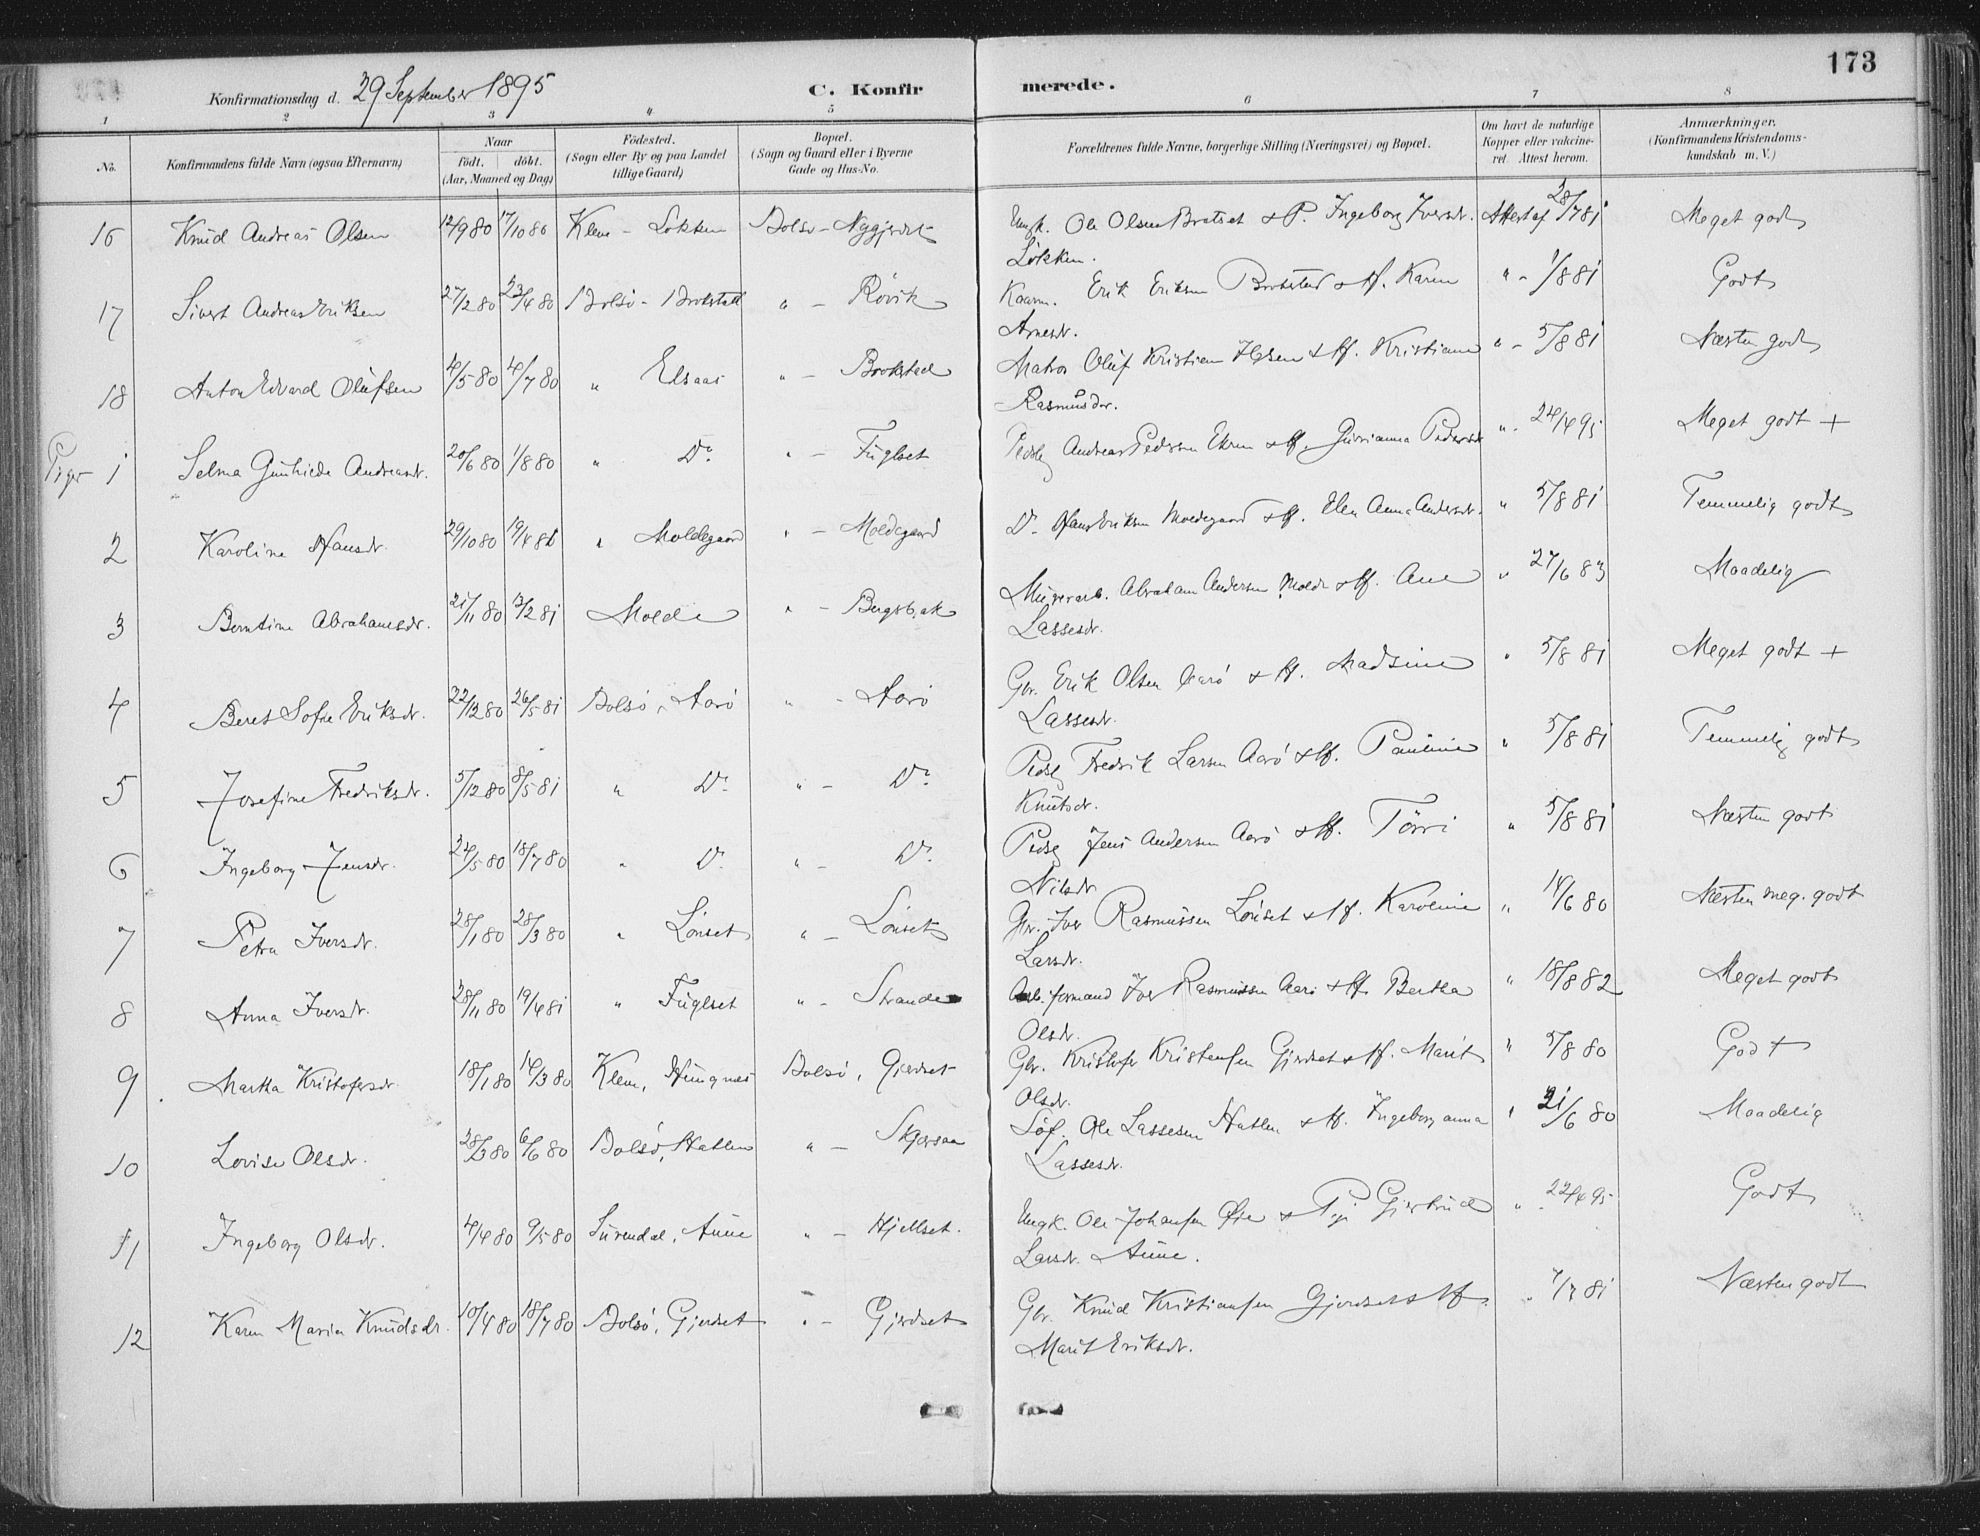 173
Konfirmationsdag d. 29 September 1895
C. Konfirmerede.
1 2 3 4 5 6 7 8
No. Konfirmandens fulde Navn (ogsaa Efternavn) Naar födt. döbt. (Aar, Maaned og Dag) Födested. (Sogn eller By og paa Landet tillige Gaard) Bopæl. (Sogn og Gaard eller i Byerne Gade og Hus-No. Forældrenes fulde Navne, borgerlige Stilling (Næringsvei) og Bopæl. Om havt de naturlige Kopper eller vakcineret. Attest herom. Anmærkninger. (Konfirmandens Kristendomskundskab m. V.)
16 Knud Andreas Olsen 12/9 80 17/10 80 Kleve - Løkken Bolsø - Nygjerdet Ungk. Ole Olsen Bratset & P. Ingeborg Iversdr. Attest af 28/7 81 Meget godt
Løkken.
17 Sivert Andreas Eriksen 27/2 80 23/4 80 Bolsø - Brokstad " - Røvik Kaarm. Erik Eriksen Brokstad & Hf. Karen " - 1/8 81 Godt
Arnesdr.
18 Anton Edvard Olufsen 4/5 80 4/7 80 " Elsaas " - Brokstad Matros Oluf Kristian Olsen & Hf. Kristiane " - 5/8 81 Næsten godt
Rasmusdr.
Piger 1 Selma Gunhilde Andreasdr. 20/6 80 1/8 80 " Do " - Fuglset Pedslg Andreas Pedersen Ekren & Hf. Gurianna Pedersdr " - 24/4 95 Meget godt +
2 Karoline Hansdr. 29/10 80 19/4 81 " Moldegaard " - Moldegaard Do Hans Eriksen Moldegaard & Hf. Elen Anna Andersdr. " 5/8 81 Temmelig godt
3 Berntine Abrahamsdr. 21/11 80 13/2 81 Molde " - Bergsbak Murerarb. Abraham Andersen Molde & Hf. Ane " 27/6 83 Maadelig
Lassesdr.
4 Beret Sofie Eriksdr. 22/12 80 26/5 81 Bolsø, Aarø " - Aarø Gbr. Erik Olsen Aarø & Hf. Madsine " 5/8 81 Meget godt +
Lassesdr.
5 Josefine Fredriksdr. 5/12 80 8/5 81 " Do " - Do Pedslg Fredrik Larsen Aarø & Hf. Pauline " 5/8 81 Temmelig godt
Knutsdr.
6 Ingeborg Jensdr. 24/5 80 18/7 80 " Do " - Do Pedslg Jens Andersen Aarø & Hf. Törri " 5/8 81 Næsten godt
Nilsdr
7 Petra Iversdr. 28/1 80 28/3 80 " Lönset " - Lönset Gbr. Iver Rasmussen Lönset & Hf. Karoline " 14/6 80 Næsten meg. godt
Larsdr.
8 Anna Iversdr. 28/11 80 19/4 81 " Fuglset " - Strande Arb. formand Iver Rasmussen Aarø & Hf. Bertha " 18/8 82 Meget godt
Olsdr.
9 Martha Kristofersdr. 18/1 80 14/3 80 Kleve, Hungnes Bolsø, Gjerdset Gbr. Kristofer Kristensen Gjerdset & Hf. Marit " 5/8 80 Godt
Olsdr.
10 Lovise Olsdr. 28/3 80 6/6 80 Bolsø, Hatlen " - Skjorsaa Löf. Ole Lassesen Hatlen & Hf. Ingeborganna " 21/6 80 Maadelig
Lassesdr.
11 Ingeborg Olsdr. 4/4 80 9/5 80 Surendal, Aune " - Hjellset. Ungk. Ole Johansen Øie & Pige Gjertrud " - 22/4 95 Godt
Larsdr. Aune.
12 Karen Maria Knudsdr. 10/4 80 18/7 80 Bolsø, Gjerdset " - Gjerdset Gbr. Knud Kristiansen Gjerdset & Hf. " 7/7 81 Næsten godt
Marit Eriksdr.